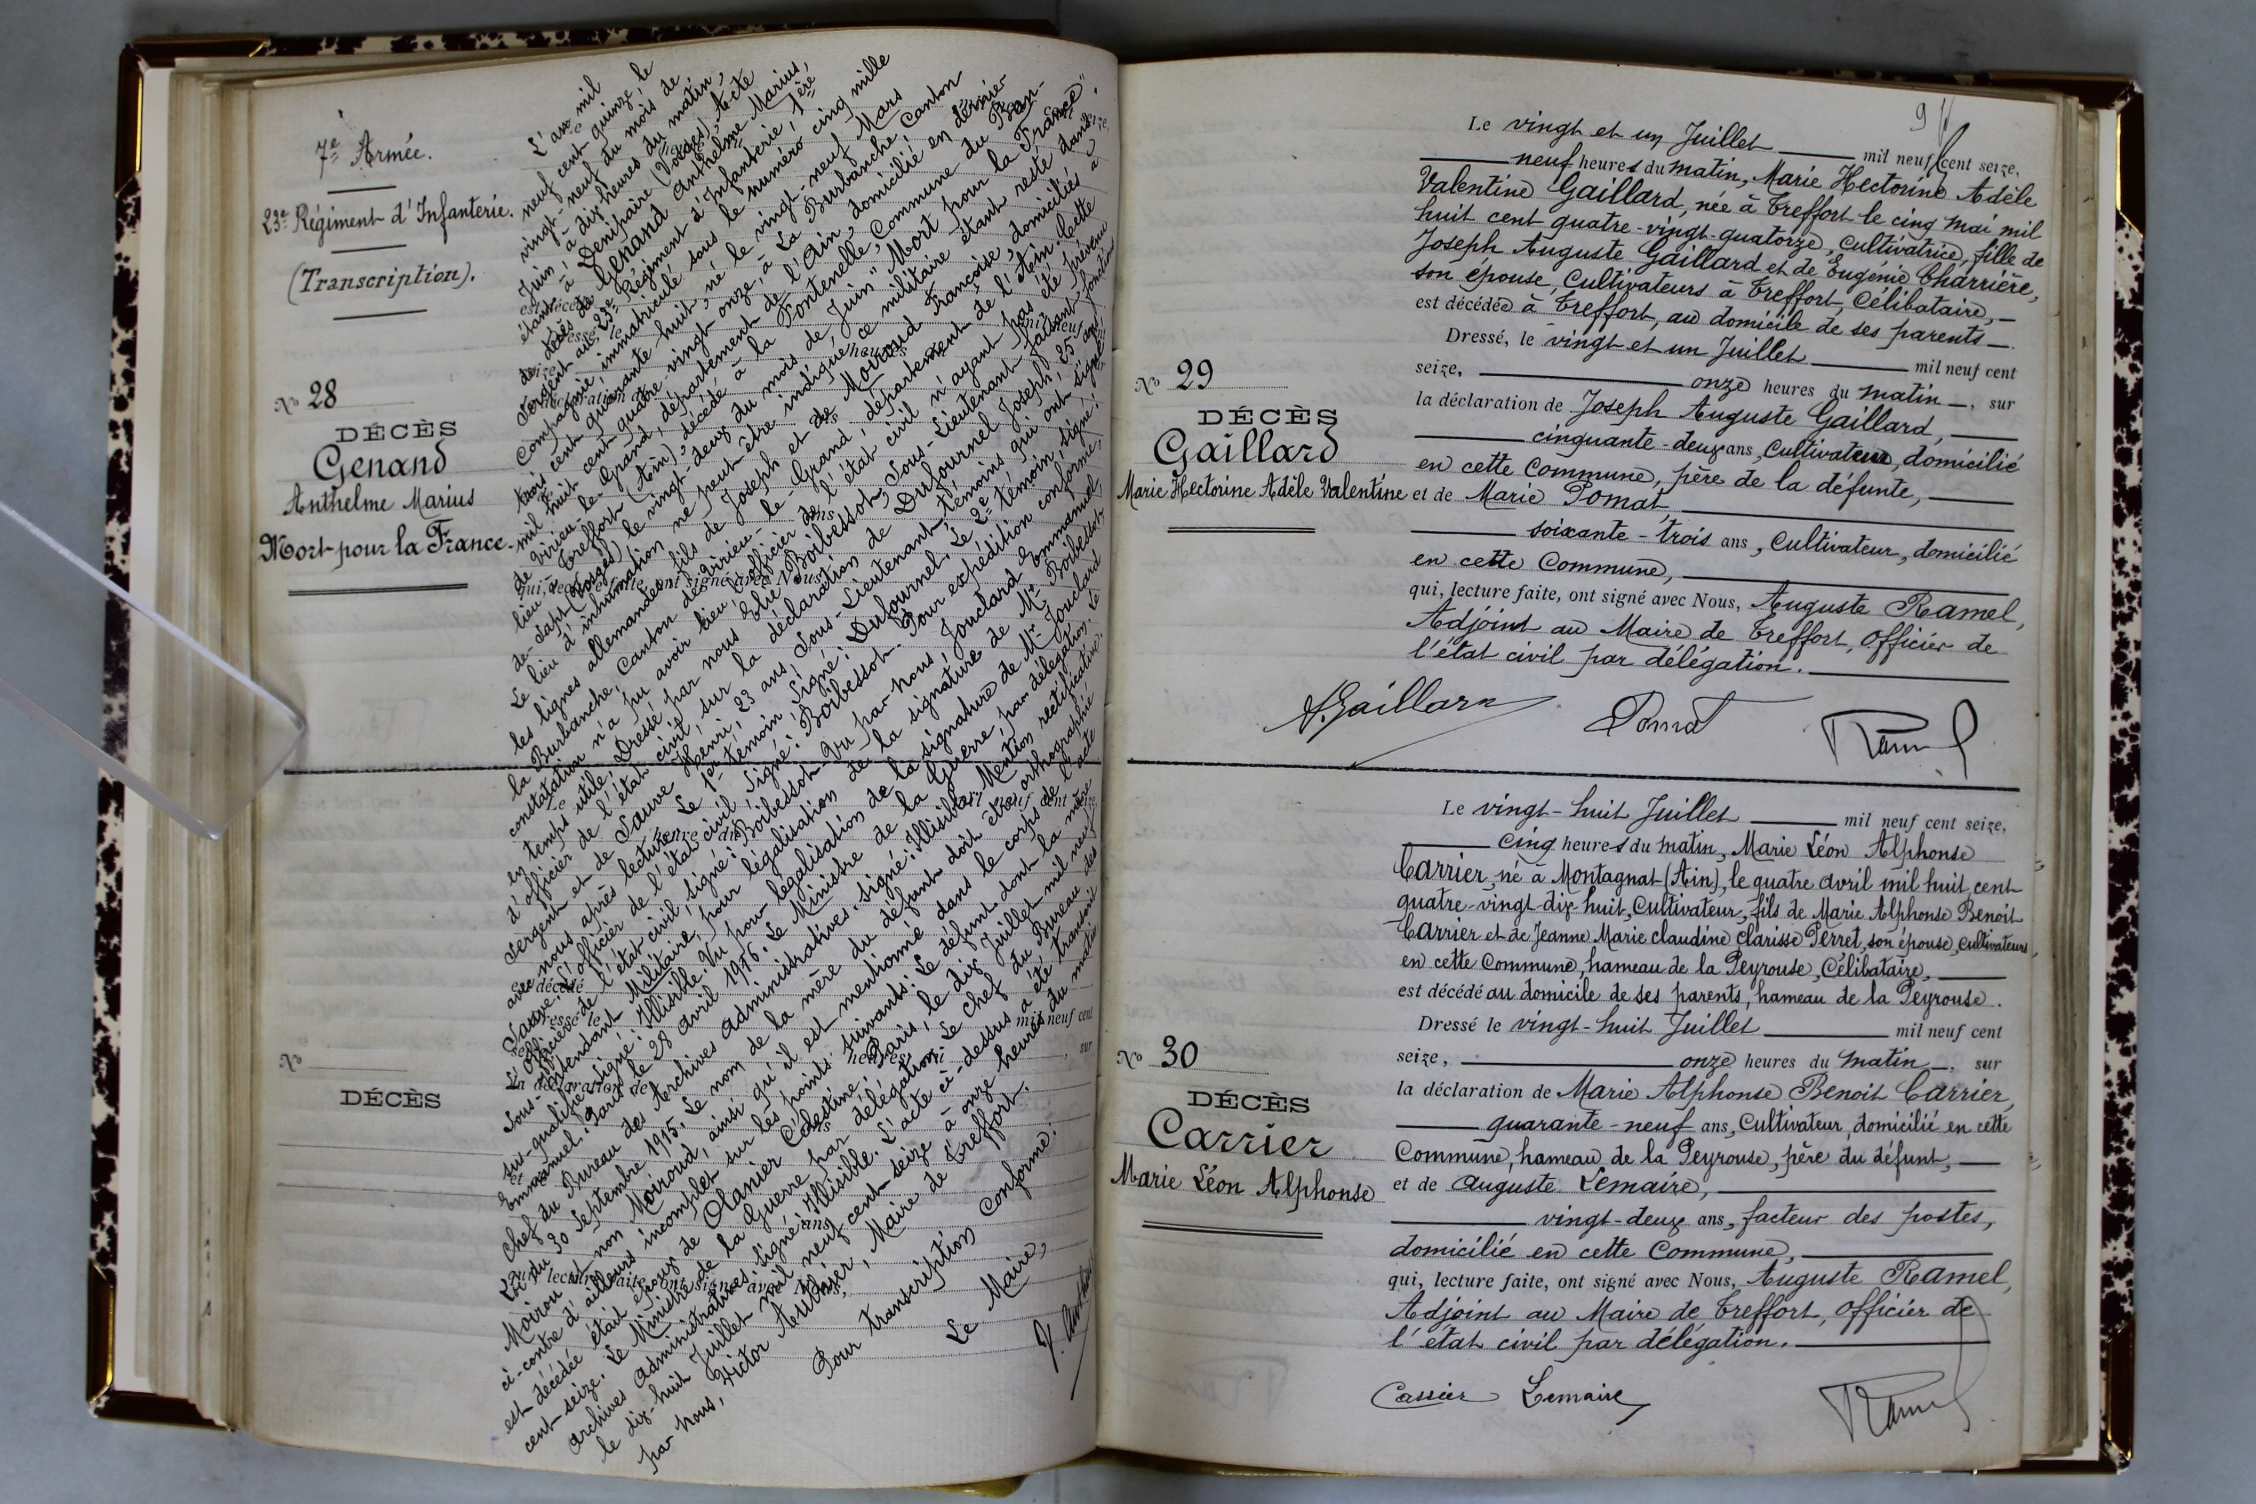 7e Armée.
23e Régiment d'Infanterie.
(Transcription).
No 28
DÉCÈS
Genand
Anthelme Marius
Mort pour la France
No
DÉCÈS
L'an mil
neuf cent quinze, le
vingt-neuf du mois de
Juin, à dix heures du matin,
étant à Denipaire (Vosges), Acte
de décès de Genand Anthelme Marius,
Sergent au 23e Régiment d'Infanterie, 1ère
Compagnie, immatriculé sous le numéro cinq mille
trois cent quarante huit, né le vingt-neuf Mars
mil huit cent quatre-vingt-onze, à La Burbanche Canton
de Virieu-le-Grand, département de l'Ain, domicilié en dernier
lieu à Treffort (Ain), décédé à la Fontenelle, Commune du Ban-
de-Sapt (Vosges) le vingt-deux du mois de Juin "Mort pour la France".
Le lieu d'inhumation ne peut-être indiqué, ce militaire étant resté dans
les lignes allemandes, fils de Joseph et de Moiroud Françoise, domiciliés à
la Burbanche, Canton de Virieu-le-Grand, département de l'Ain. Cette
constatation n'a pu avoir lieu, l'officier de l'état civil n'ayant pas été prévenu
en temps utile. Dressé par nous Elie Boibessot, Sous-Lieutenant faisant fonctions
d'officier de l'état civil, sur la déclaration de Dufournel Joseph, 25 ans,
Sergent et de Sauve Henri, 23 ans, Sous-Lieutenant, témoins qui ont signé
avec nous après lecture. Le 1er témoin Signé: Dufournel. Le 2e témoin, signé:
Sauve. L'officier de l'état civil Signé: Boibessot. Pour expédition conforme,
L'officier de l'état civil, signé: Boibessot. Vu par nous, Jouclard Emmanuel
Sous-Intendant Militaire, pour légalisation de la signature de Mr Boibessot
sus-qualifié. signé: Illisible. Vu pour légalisation de la signature de Mr Jouclard
Emmanuel. Paris le 28 avril 1916. Le Ministre de la Guerre, par délégation. Le
Chef du Bureau des Archives Administratives. signé: Illisible. Mention rectificative.
Loi du 30 Septembre 1915. Le nom de la mère du défunt doit être orthographié
Moirou et non Moiroud, ainsi qu'il est mentionné dans le corps de l'acte
ci-contre d'ailleurs incomplet sur les points suivants: Le défunt dont la mère
est décédée était époux de Olanier Célestine. Paris, le dix Juillet mil neuf
cent-seize. Le Ministre de la Guerre par délégation. Le Chef du Bureau des
Archives Administratives. signé: Illisible. L'acte ci-dessus a été transcrit
le dix-huit Juillet mil neuf cent-seize à onze heures du matin
par nous, Victor Maire de Treffort.
Pour transcription conforme:
Le Maire,
Le vingt et un Juillet mil neuf cent seize,
neuf heures du matin, Marie Hectorine Adèle
Valentine Gaillard, née à Treffort le cinq mai mil
huit cent quatre-vingt-quatorze, cultivatrice, fille de
Joseph Auguste Gaillard et de Eugénie Charrière,
son épouse, Cultivateurs à Treffort, Célibataire,
est décédée à Treffort, au domicile de ses parents.
Dressé, le vingt et un Juillet mil neuf cent
seize, onze heures du matin, sur
la déclaration de Joseph Auguste Gaillard,
cinquante-deux ans, Cultivateur, domicilié
en cette Commune, père de la défunte,
et de Marie Pomat
soixante-trois ans, Cultivateur, domicilié
en cette Commune,
qui, lecture faite, ont signé avec Nous, Auguste Ramel,
Adjoint au Maire de Treffort, Officier de
l'état civil par délégation.
No 29
DÉCÈS
Gaillard
Marie Hectorine Adèle Valentine
A. Gaillard Pomat Ramel
Le vingt-huit Juillet mil neuf cent seize,
cinq heures du matin, Marie Léon Alphonse
Carrier, né à Montagnat (Ain), le quatre avril mil huit cent
quatre-vingt-dix-huit, Cultivateur, fils de Marie Alphonse Benoit
Carrier et de Jeanne Marie claudine Clarisse Perret, son épouse, Cultivateurs
en cette Commune, hameau de la Peyrouse, Célibataire,
est décédé au domicile de ses parents, hameau de la Peyrouse.
Dressé le vingt-huit Juillet mil neuf cent
seize, onze heures du matin, sur
la déclaration de Marie Alphonse Benoit Carrier,
quarante-neuf ans, Cultivateur, domicilié en cette
Commune, hameau de la Peyrouse, père du défunt,
et de Auguste Lemaire,
vingt-deux ans, facteur des postes,
domicilié en cette Commune,
qui, lecture faite, ont signé avec Nous, Auguste Ramel,
Adjoint au Maire de Treffort, Officier de
l'état civil par délégation.
No 30
DÉCÈS
Carrier
Marie Léon Alphonse
Carrier Lemaire Ramel